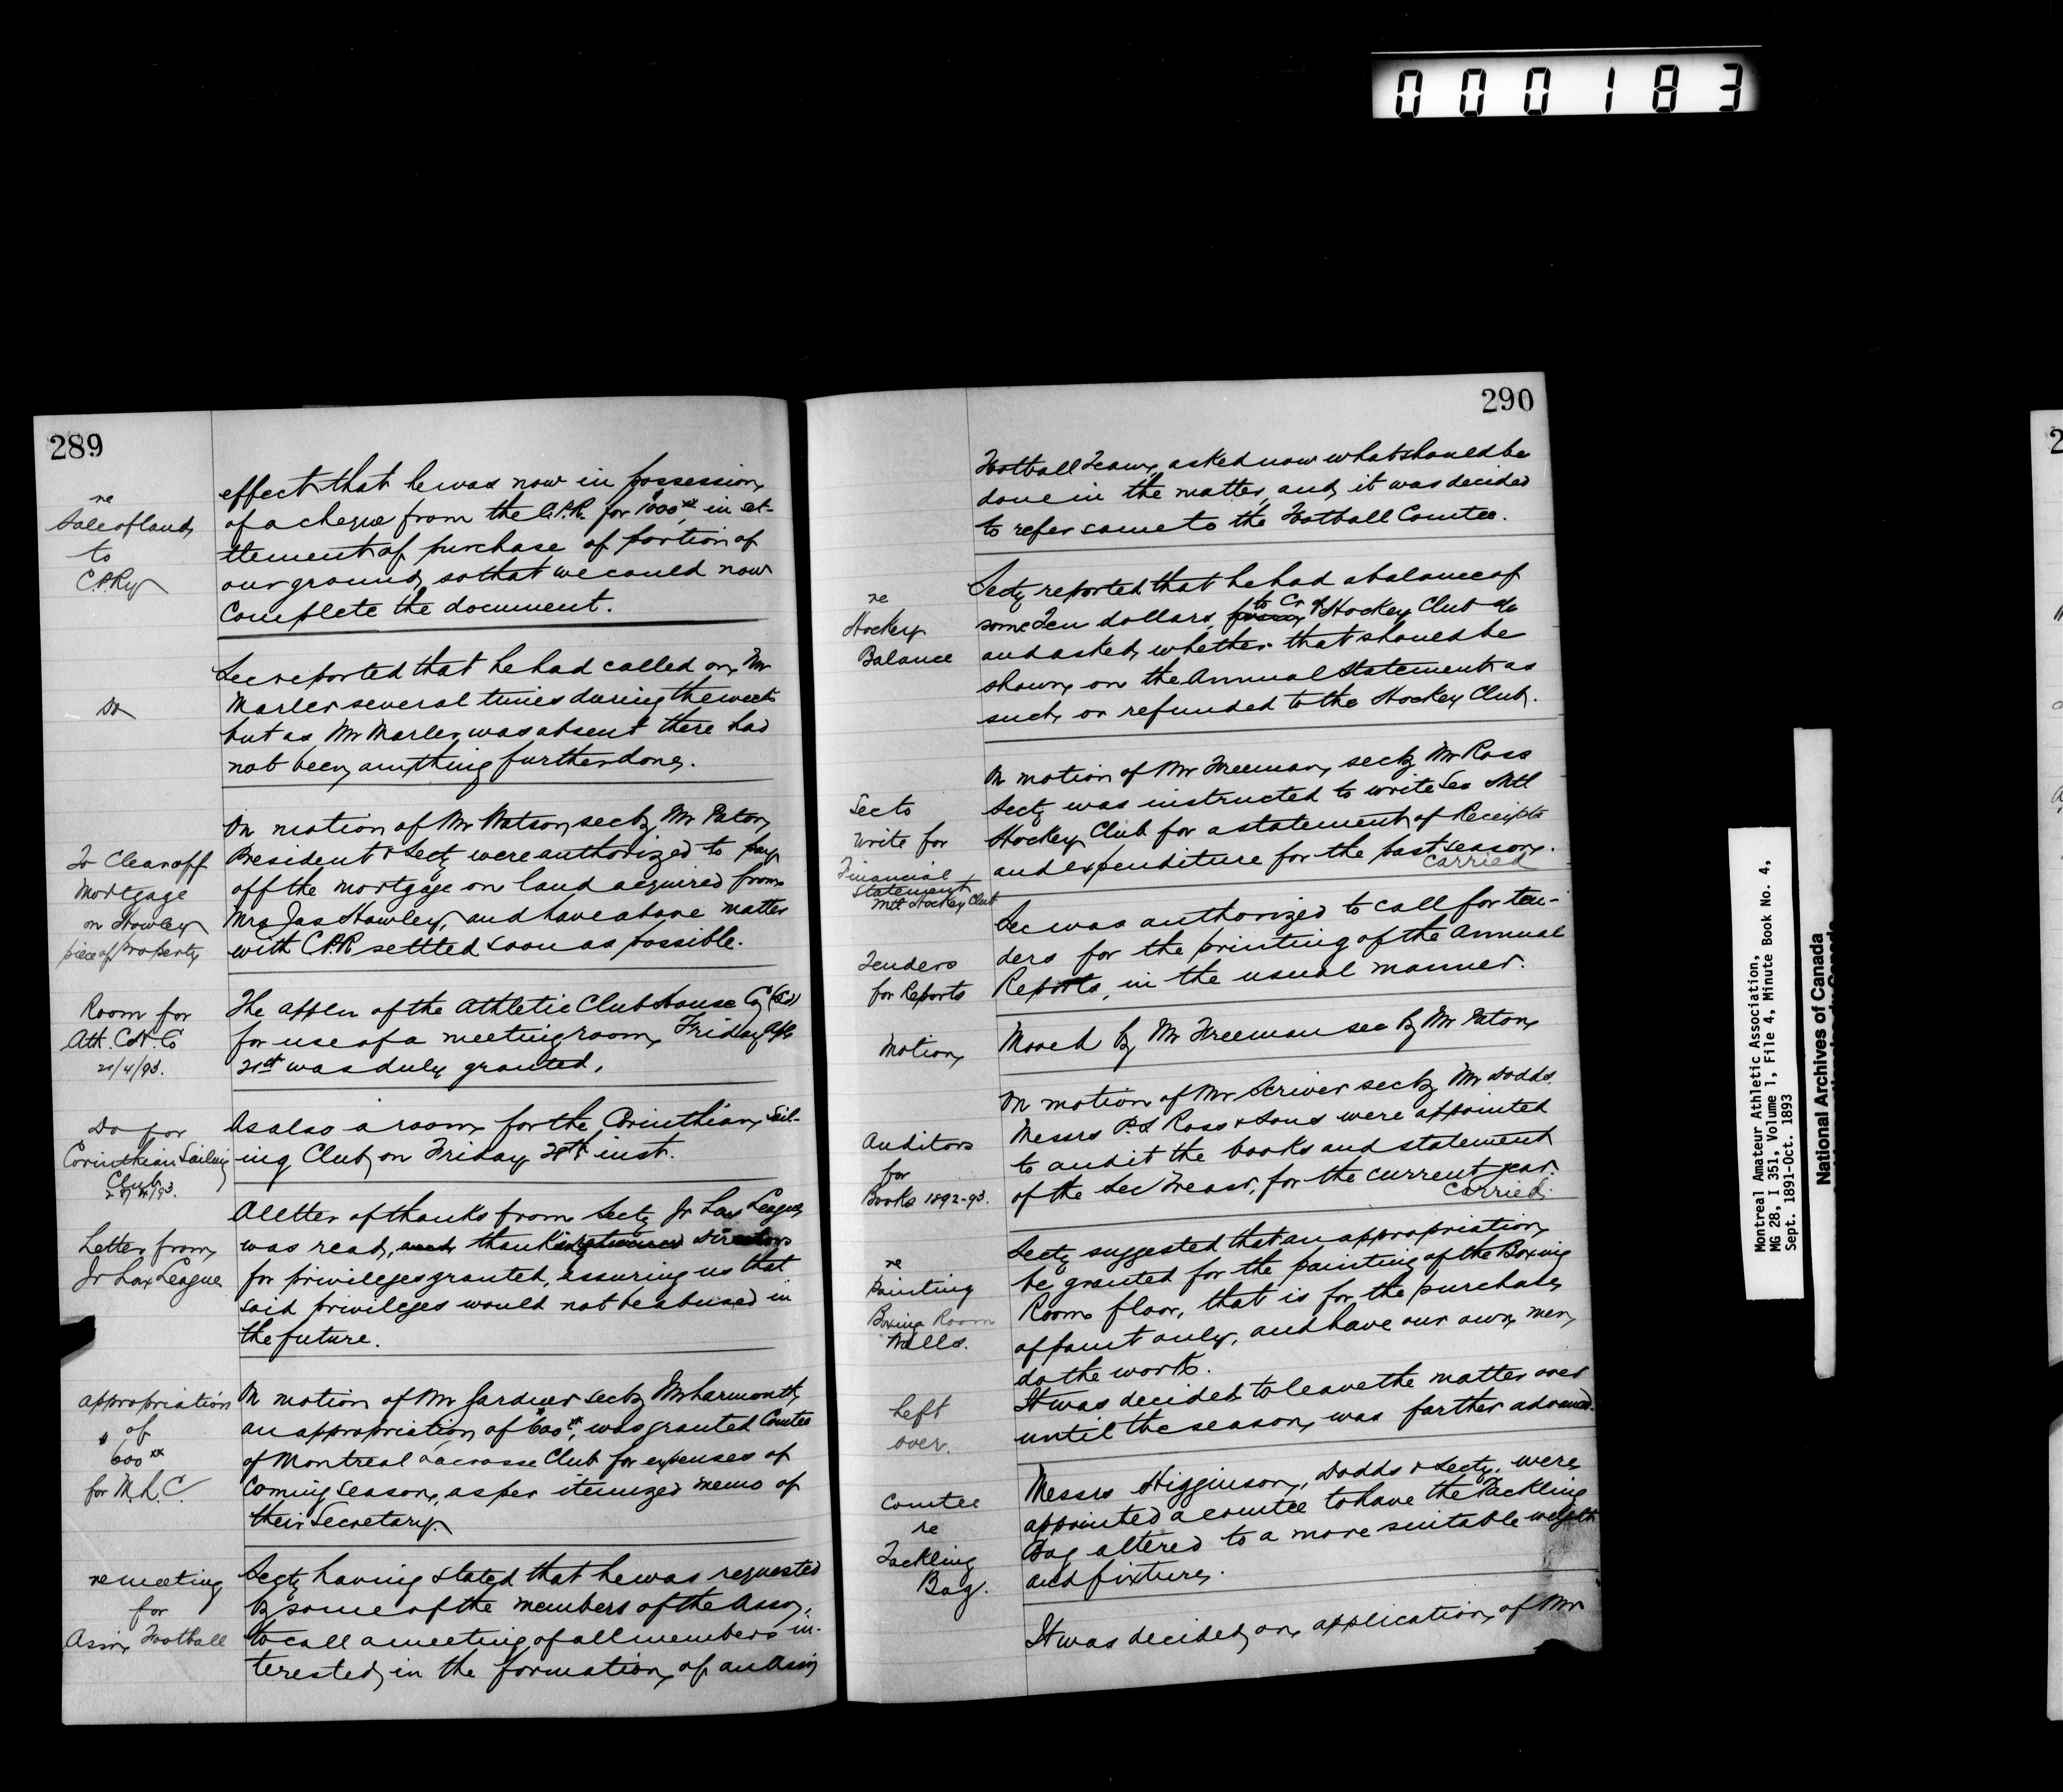 000183
289
re
Sale of land
to
C.P.Ry
effect that he was now in possession
of a cheque from the C.P.R. for $1000.xx in set-
tlement of purchase of portion of
our ground, so that we could now
Complete the document.
Do
Sec reported that he had called on Mr
Marler several times during the week
but as Mr Marler was absent there had
not been anything further done.
To Clear off
Mortgage
on Howley
piece of Property
On motion of Mr Watson sec by Mr Paton
President & Secty were authorized to pay
off the mortgage on land acquired from
Mrs Jas Howley, and have above matter
with C.P.R settled soon as possible.
Room for
Ath. C.H. Co
21/4/93.
The applcn of the Athletic Club House Co (Ld)
for use of a meeting room, Friday Apl
21st was duly granted.
Do for
Corinthian Sailing
Club
28/4/93.
As also a room for the Corinthian Sail-
ing Club on Friday 28th inst.
Letter from
Jr Lax League
A letter of thanks from Secty Jr Lax League
was read, thanking Directors
for privileges granted, assuring us that
said privileges would not be abused in
the future.
appropriation
of
$600.xx
for M.L.C.
On motion of Mr Gardner sec by Mr Larmonth
an appropriation of $600.xx, was granted Comtee
of Montreal Lacrosse Club for expenses of
Coming Season, as per itemized memo of
their Secretary.
re meeting
for
Assn Football
Secty having stated that he was requested
by some of the members of the Assn,
to call a meeting of all members in-
terested in the formation of an Assn
290
Football Team, asked now what should be
done in the matter, and it was decided
to refer same to the Football Comtee.
re
Hockey
Balance
Secty reported that he had a balance of
some Ten dollars, to Cr of Hockey Club a/c
and asked whether that should be
shown on the Annual Statement as
such or refunded to the Hockey Club.
Sec to
write for
Financial
Statement
Mtl Hockey Club
On motion of Mr Freeman, sec by Mr Ross
Secty was instructed to write Sec Mtl
Hockey Club for a statement of Receipts
and expenditure for the past season.
Carried
Tenders
for Reports
Sec was authorized to call for ten-
ders for the printing of the Annual
Reports, in the usual manner.
Motion
Moved by Mr Freeman sec by Mr Paton
Auditors
for
Books 1892-93.
On motion of Mr Scriver sec by Mr Dodds
Messrs P.S Ross & Sons were appointed
to audit the books and statement
of the Sec Treasr, for the current year.
Carried.
re
Painting
Boxing Room
Walls.
Secty suggested that an appropriation
be granted for the painting of the Boxing
Room floor, that is for the purchase
of paint only, and have our own men
do the work.
Left
over.
It was decided to leave the matter over
until the season was farther advanced.
Comtee
re
Tackling
Bag.
Messrs Higginson, Dodds & Secty. were
appointed a comtee to have the Tackling
Bag altered to a more suitable weight
and fixture.
It was decided, on application of Mr
Montreal Amateur Athletic Association,
MG 28, I 351, Volume 1, File 4, Minute Book No. 4,
Sept. 1891-Oct. 1893
National Archives of Canada